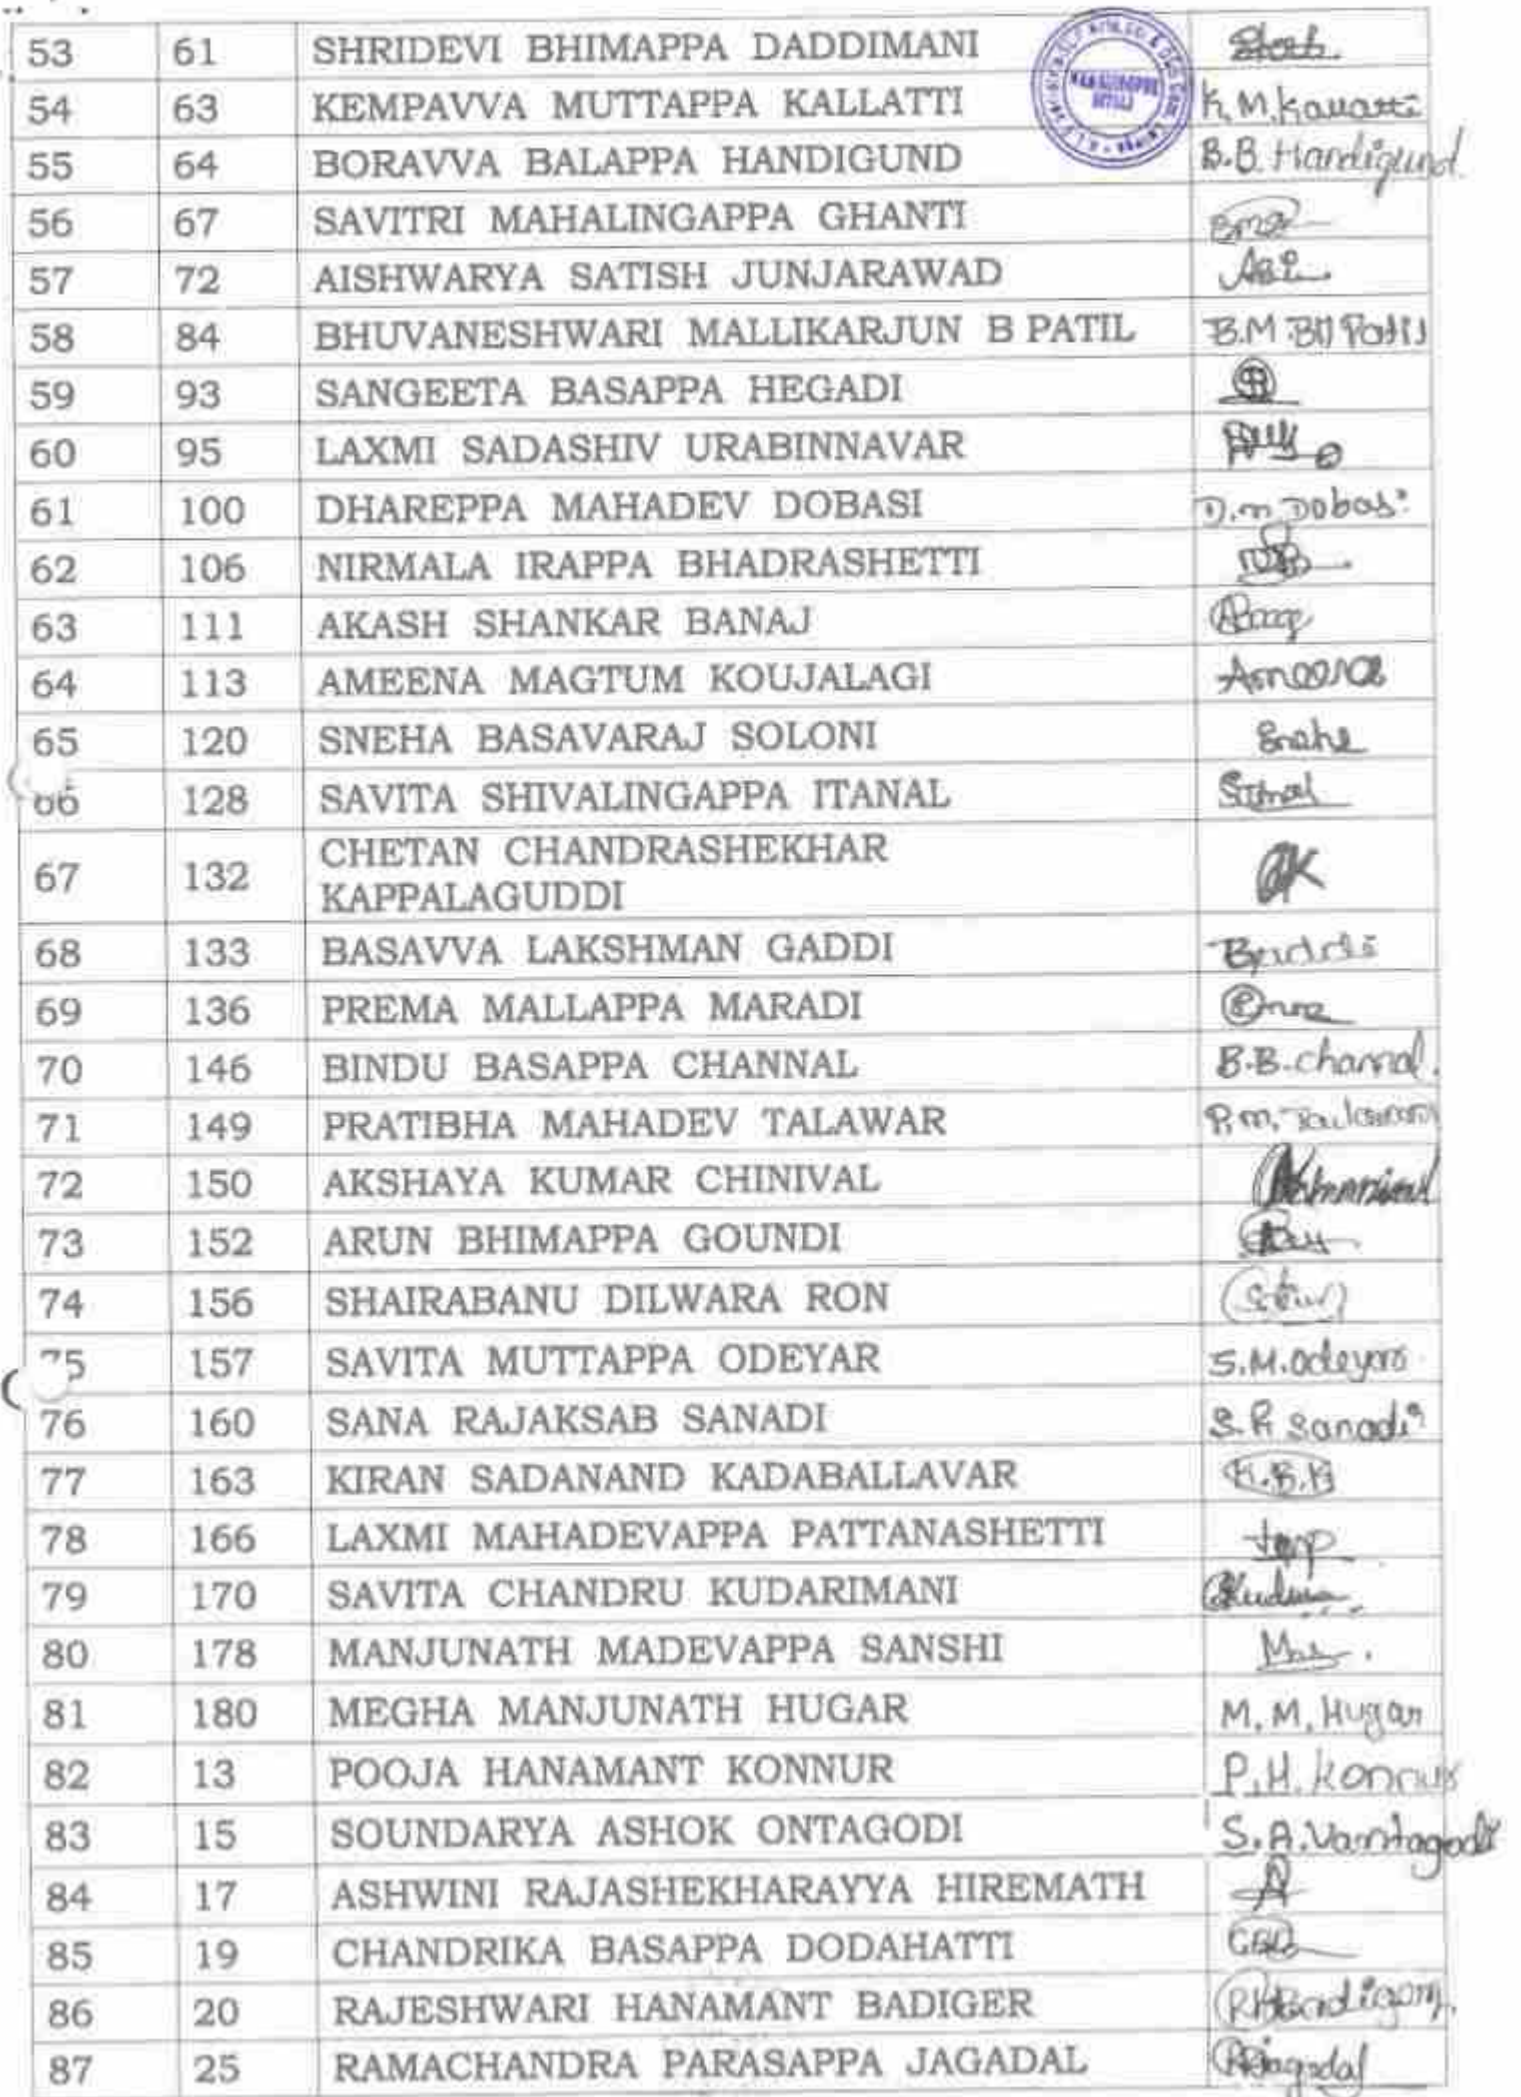 53 61 SHRIDEVI BHIMAPPA DADDIMANI
54 63 KEMPAVVA MUTTAPPA KALLATTI K.M.Kallatti
55 64 BORAVVA BALAPPA HANDIGUND B.B.Handigund.
56 67 SAVITRI MAHALINGAPPA GHANTI
57 72 AISHWARYA SATISH JUNJARAWAD
58 84 BHUVANESHWARI MALLIKARJUN B PATIL B.M.B Patil
59 93 SANGEETA BASAPPA HEGADI
60 95 LAXMI SADASHIV URABINNAVAR
61 100 DHAREPPA MAHADEV DOBASI D.M Dobasi
62 106 NIRMALA IRAPPA BHADRASHETTI
63 111 AKASH SHANKAR BANAJ
64 113 AMEENA MAGTUM KOUJALAGI Ameena
65 120 SNEHA BASAVARAJ SOLONI Sneha
66 128 SAVITA SHIVALINGAPPA ITANAL
67 132 CHETAN CHANDRASHEKHAR
KAPPALAGUDDI
68 133 BASAVVA LAKSHMAN GADDI
69 136 PREMA MALLAPPA MARADI
70 146 BINDU BASAPPA CHANNAL B.B.channal.
71 149 PRATIBHA MAHADEV TALAWAR P.M.
72 150 AKSHAYA KUMAR CHINIVAL
73 152 ARUN BHIMAPPA GOUNDI
74 156 SHAIRABANU DILWARA RON
75 157 SAVITA MUTTAPPA ODEYAR S.M.Odeyar
76 160 SANA RAJAKSAB SANADI S.R Sanadi
77 163 KIRAN SADANAND KADABALLAVAR
78 166 LAXMI MAHADEVAPPA PATTANASHETTI
79 170 SAVITA CHANDRU KUDARIMANI
80 178 MANJUNATH MADEVAPPA SANSHI
81 180 MEGHA MANJUNATH HUGAR M.M.Hugar
82 13 POOJA HANAMANT KONNUR P.H.Konnur
83 15 SOUNDARYA ASHOK ONTAGODI S.A.Vantagodi
84 17 ASHWINI RAJASHEKHARAYYA HIREMATH
85 19 CHANDRIKA BASAPPA DODAHATTI CBD
86 20 RAJESHWARI HANAMANT BADIGER
87 25 RAMACHANDRA PARASAPPA JAGADAL